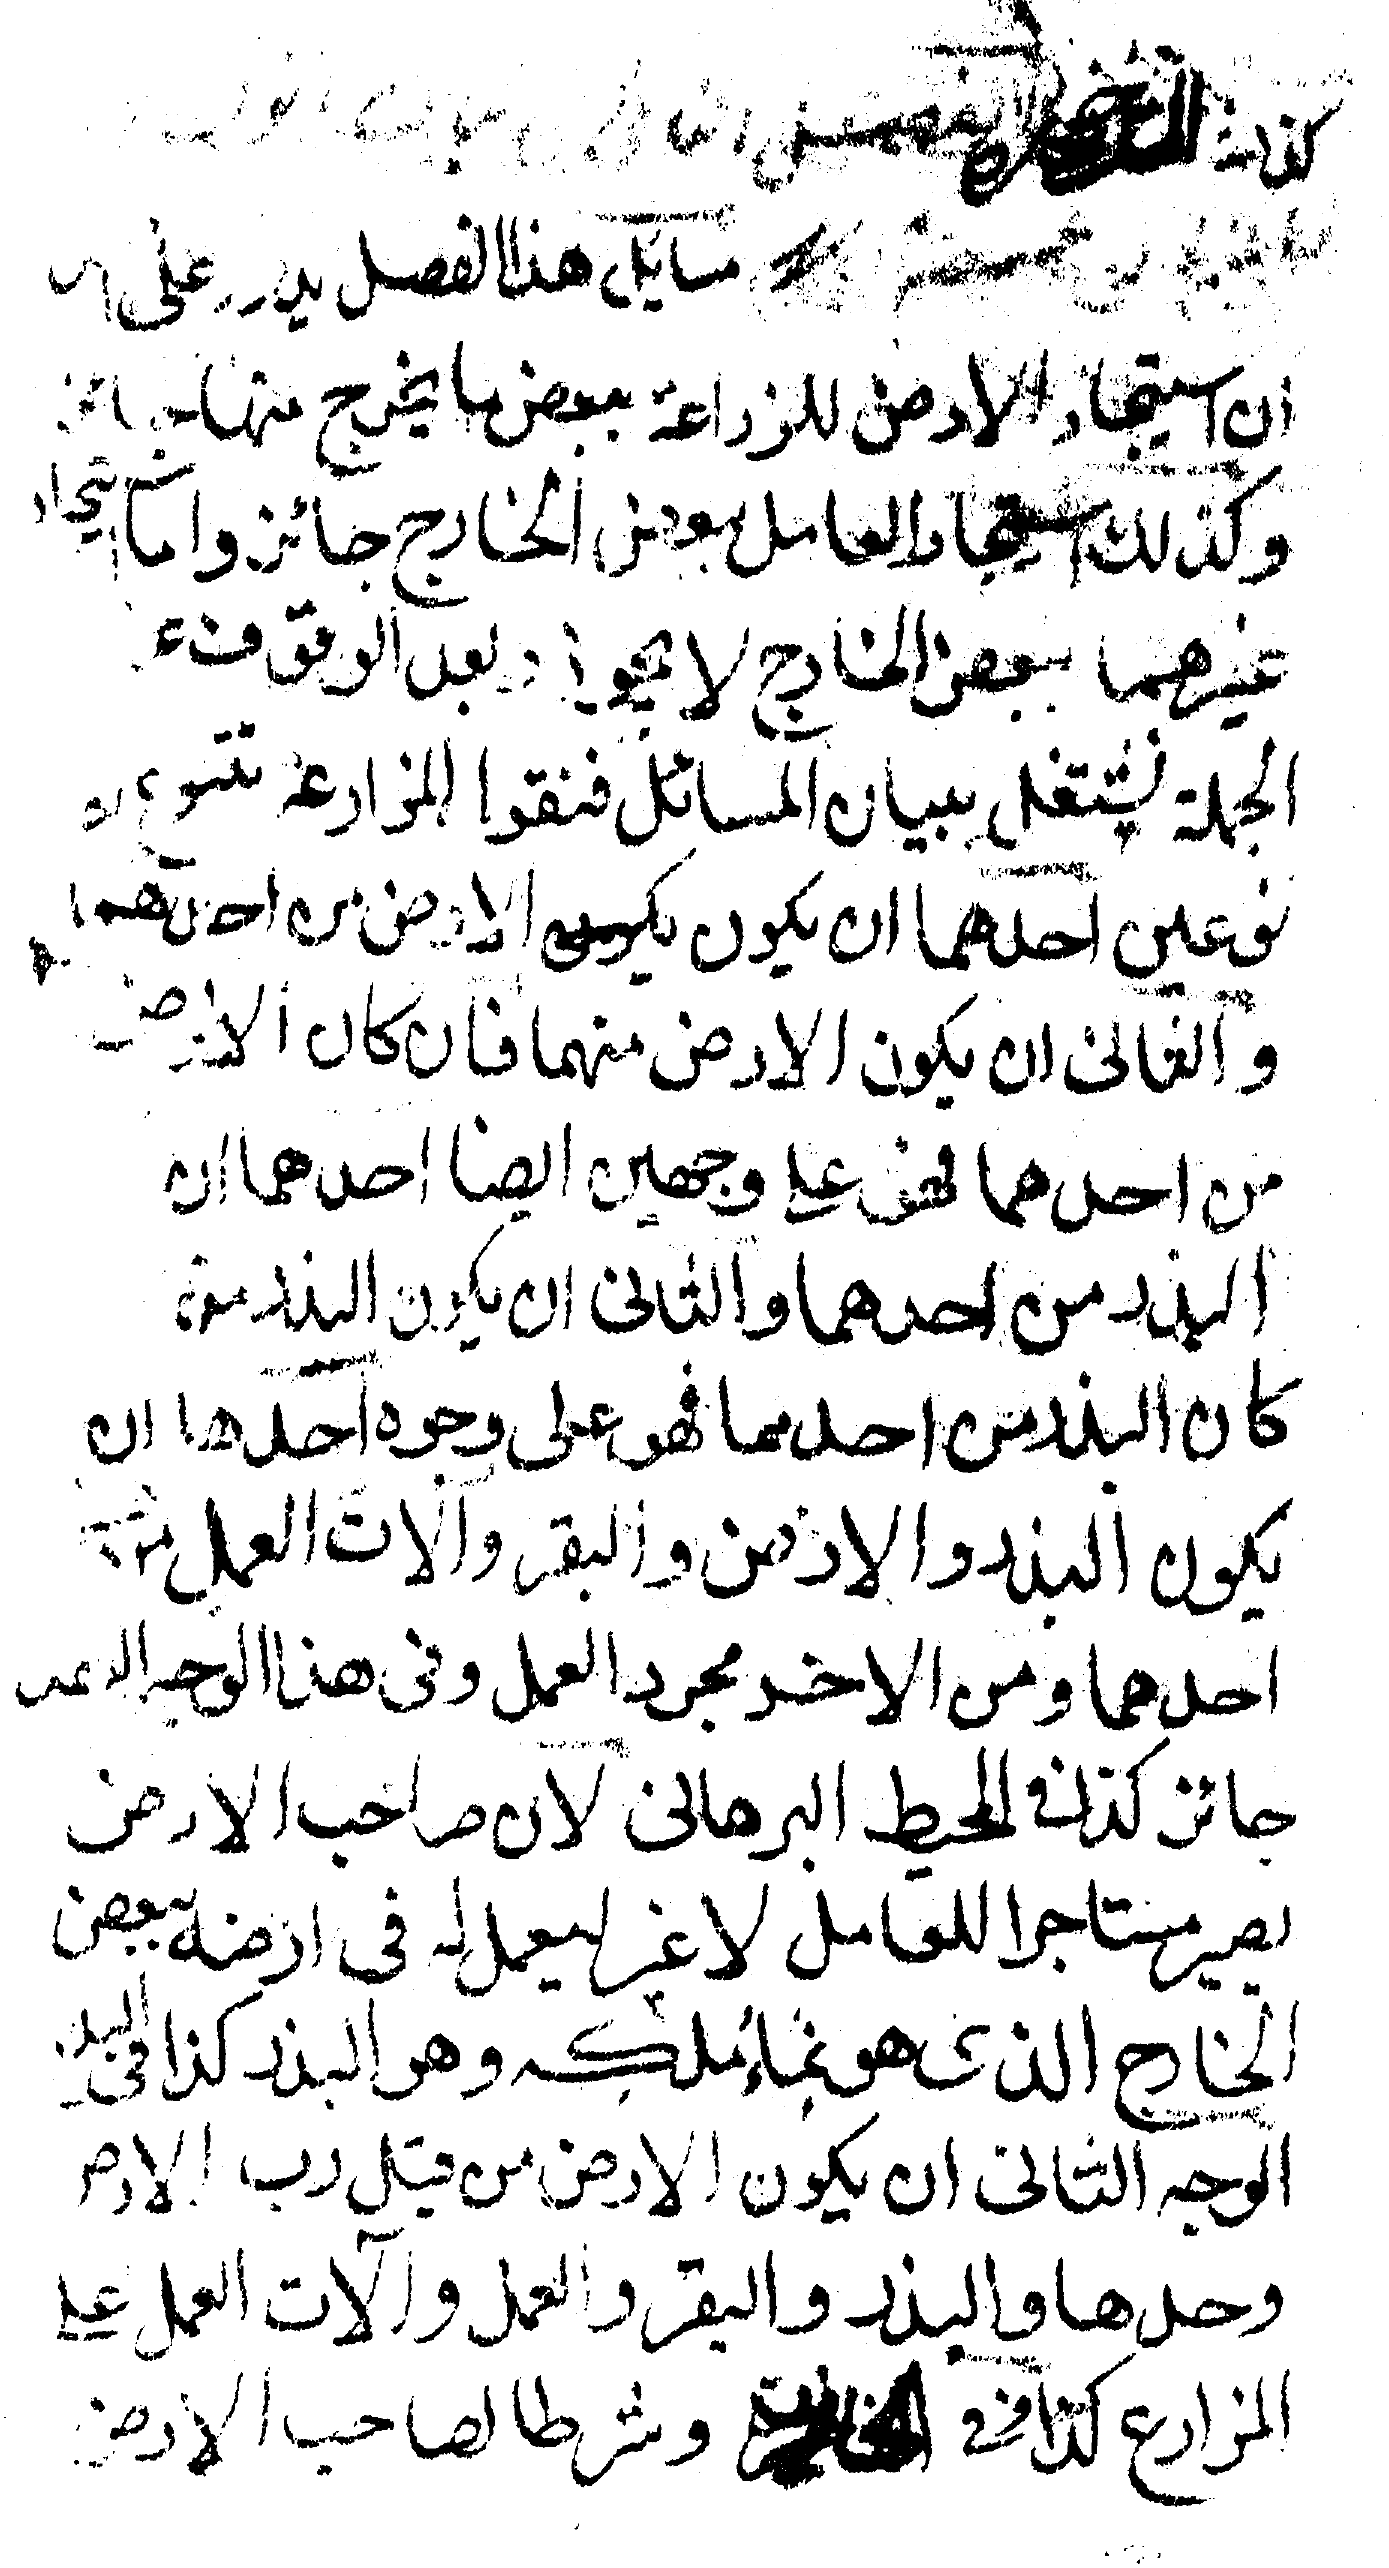 كذا في الفصل
مسايل هذا الفصل يدور على
ان استيجار الارض للزراعة ببعض ما يخرج منها جائز
وكذلك استيجار العامل ببعض الخارج جائز واما استيجار
غيرهما ببعض الخارج لا يجوز بعد الوقوف
الجملة نشتغل ببيان المسائل فنقوا المزارعة تتنوع
نوعين احدهما ان يكون الارض من احدهما
والثانى ان يكون الارض منهما فان كان الارض
من احدهما فهو على وجهين ايضا احدهما ان
البذر من احدهما والثانى ان يكون البذر
كان البذر من احدهما فهو على وجوه احدها ان
يكون البذر والارض والبقر والات العمل من
احدهما ومن الاخر مجرد العمل وفى هذا الوجه
جائز كذا فى المحيط البرهانى لان صاحب الارض
يصير مستاجرا للعامل لا غير ليعمل له فى ارضه ببعض
الخارج الذى هو نماء ملكه وهو البذر كذا فى
الوجه الثانى ان يكون الارض من قبل رب الارض
وحدها والبذر والبقر والعمل وآلات العمل على
المزارع كذا فى وشرطا لصاحب الارض